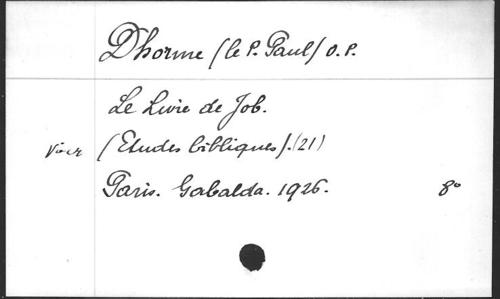 Dhorme (le P. Paul) O.P.
Le Livre de Job.
(Etudes bibliques). (21)
Paris. Gabalda. 1926. 8°